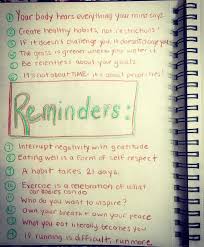 ① Your body hears everything your mind says
② Create healthy habits, not restrictions!
③ If it doesn't challenge you, it doesn't change you!
④ The grass is greener where you water it
⑤ Be relentless about your goals
⑥ It's not about TIME: it's about priorities!
Reminders:
⑦ Interrupt negativity with gratitude
⑧ Eating well is a form of self respect
⑨ A habit takes 21 days.
⑩ Exercise is a celebration of what
our bodies can do
⑪ Who do you want to inspire?
⑫ Own your breath & own your peace
⑬ What you eat literally becomes you
⑭ If running is difficult, run more.